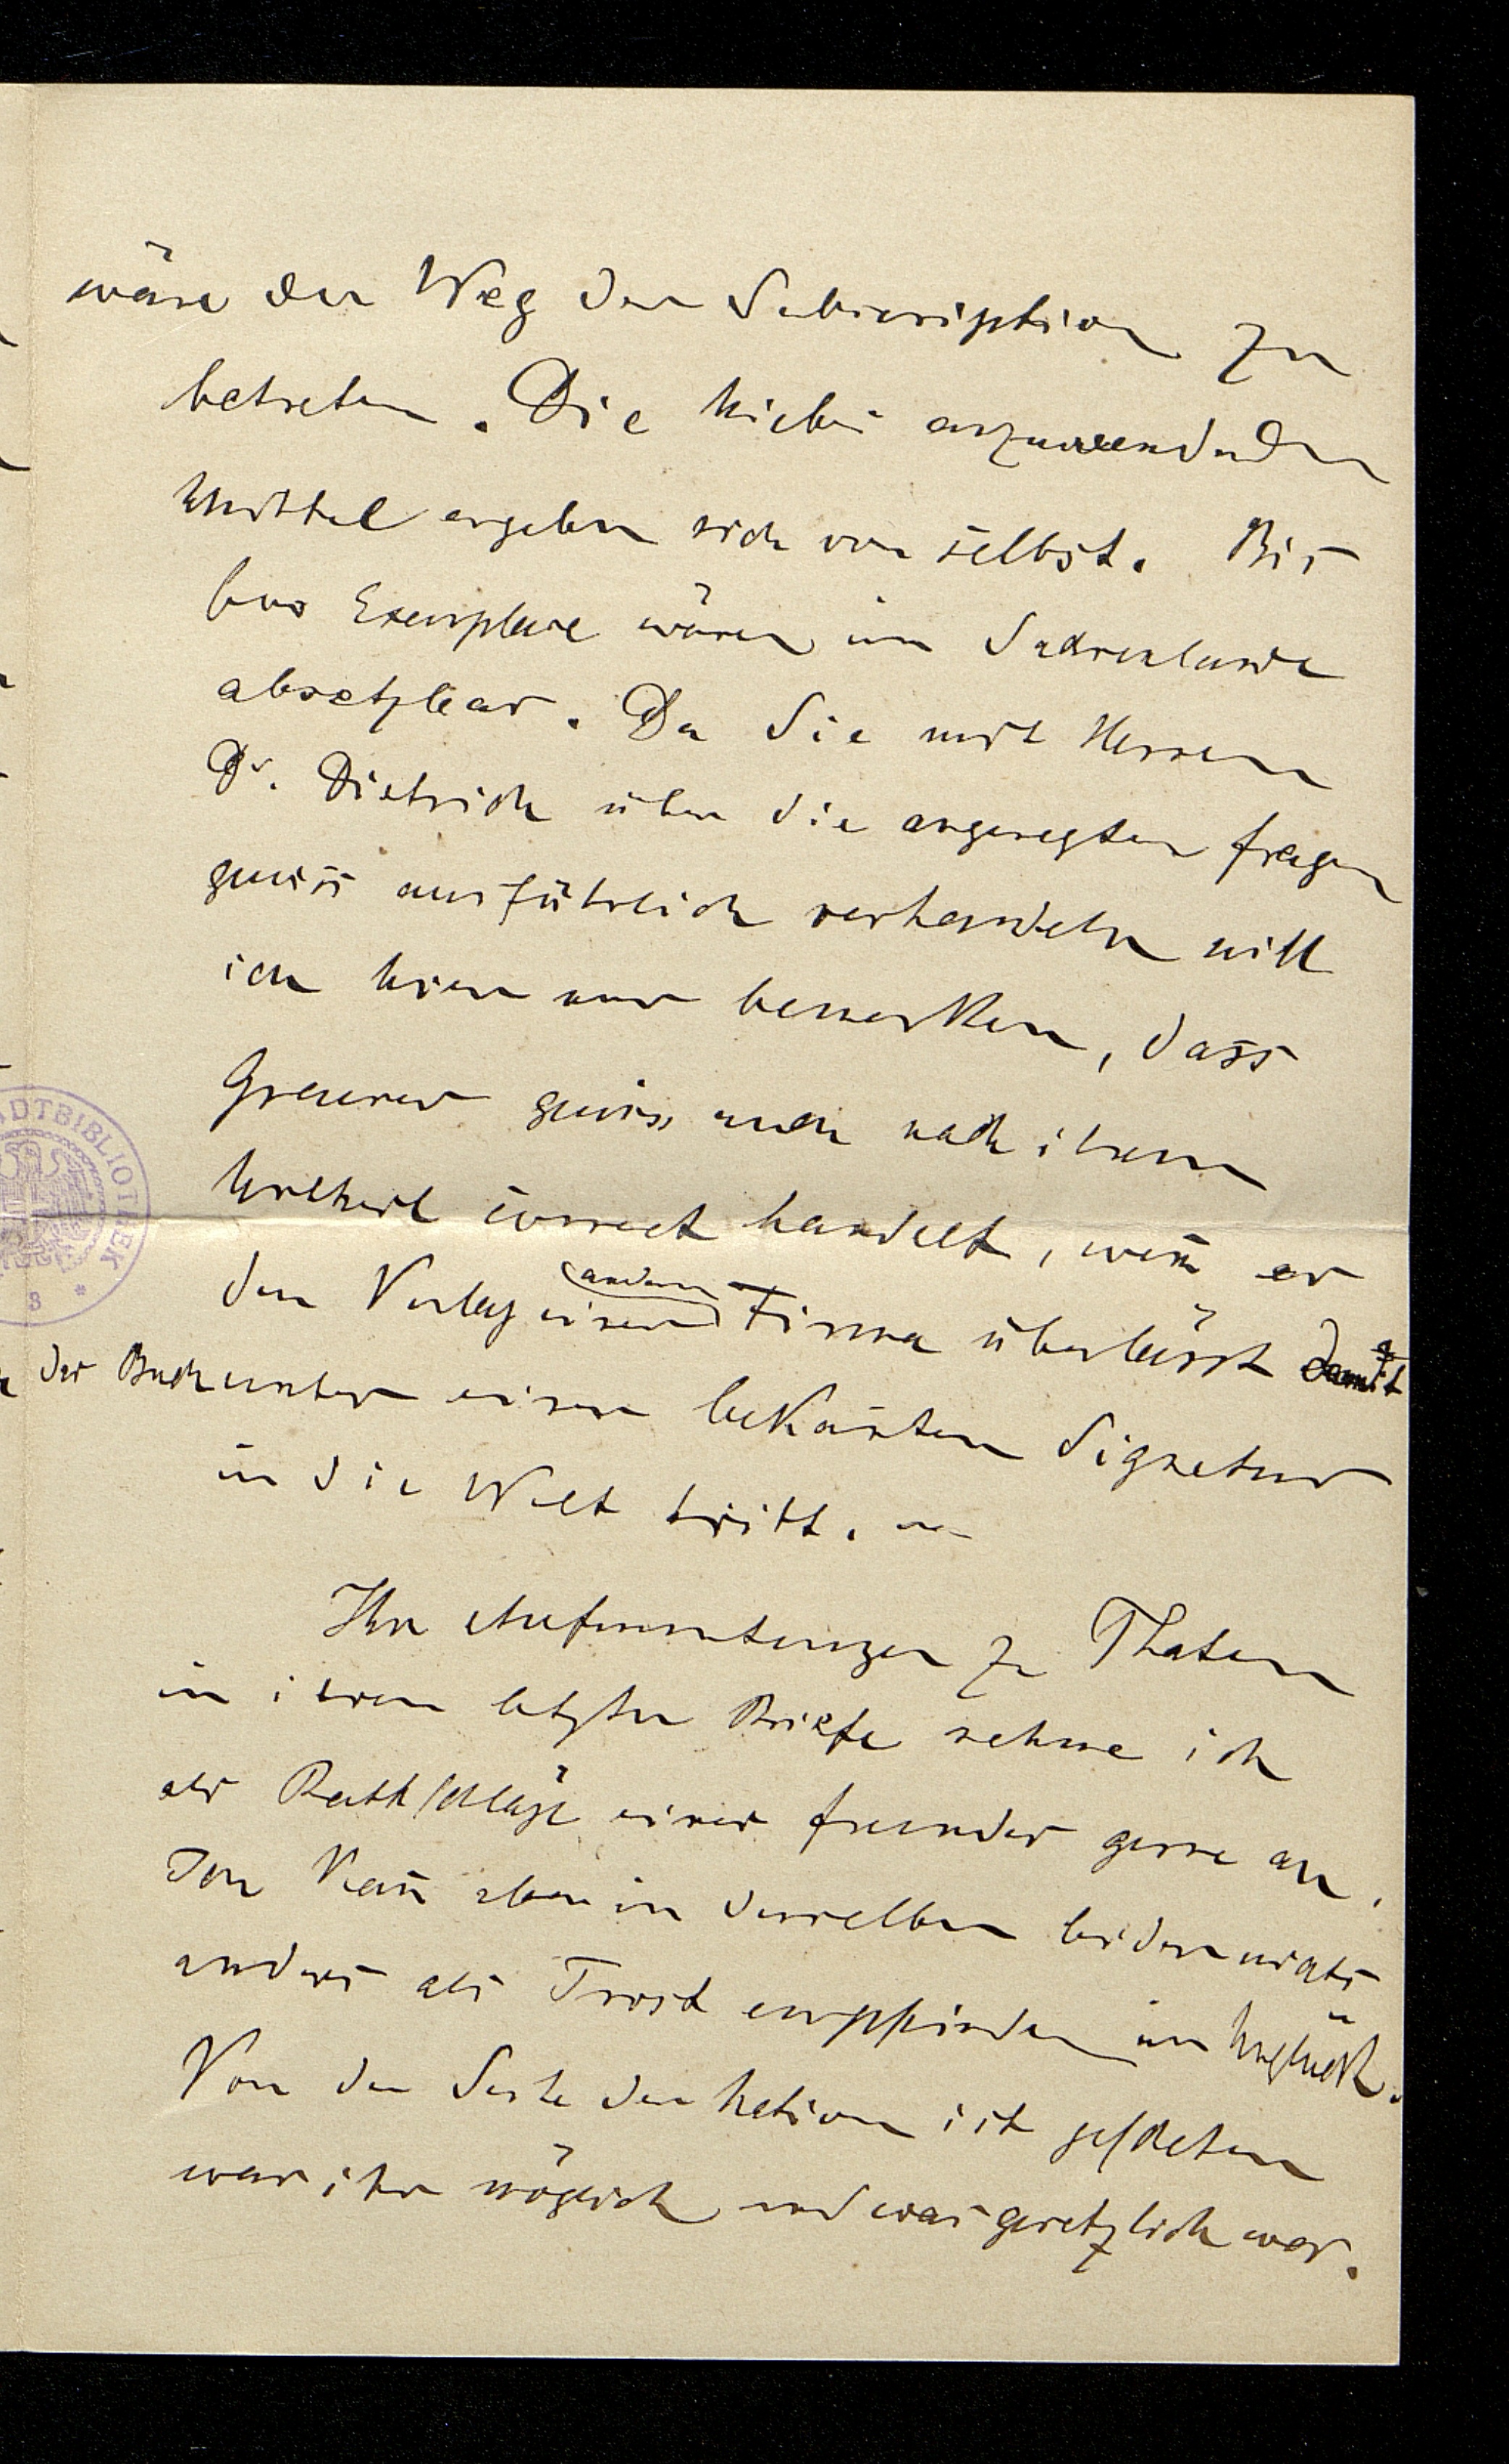 wäre der Weg der Subscription zu
betreten. Die hiebei anzuwendenden
Mittel ergeben sich von selbst. Bis
Exemplare wären im Sachsenlande
absetzbar. Da Sie mit Herren
Dr. Dietrich über die angeregten fragen
gewiss ausführlich verhandeln will
ich hier nur bemerken, dass
Graeser gewiss auch nach ihrem
Urtheil correct handelt, wen̄ er
den Verlag einer andern Firma überlässt damit
das Buch unter einer bekan̄ten Signatur
in die Welt tritt. —
Ihre Aufmunterungen zu Thaten
in ihrem letzten Briefe nehme ich
als Rathschläge eines freundes gerne an,
Ich kan̄ aber in denselben leider nichts
anders als Trost empfinden im Unglück.
Von der Seite der Nation ist geschehen
was ihr möglich und was gesetzlich war.
ADTBIBLIOTEK
3 *